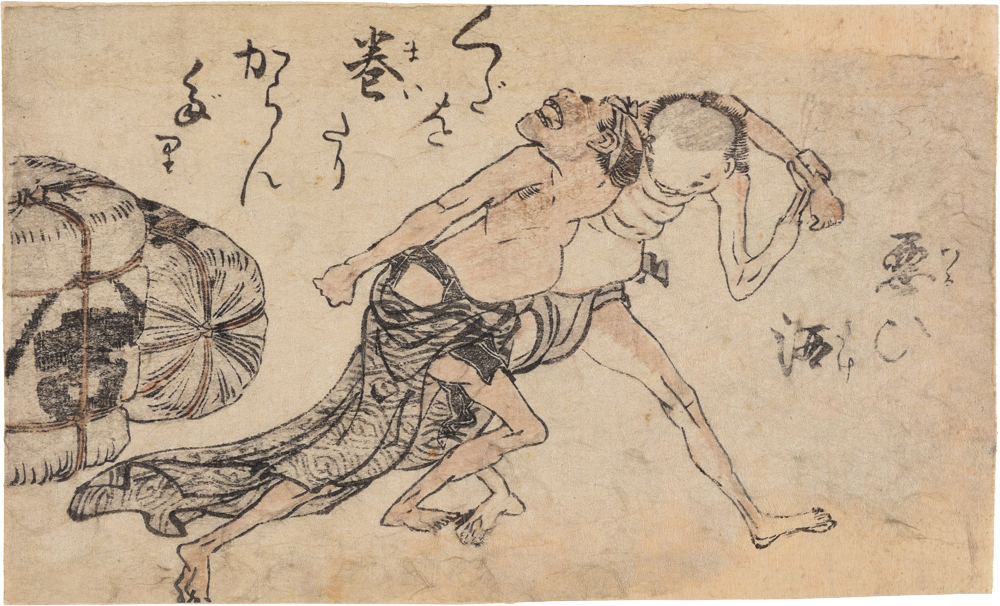 悪い
酒
くだを
巻
たり
からん
だ里